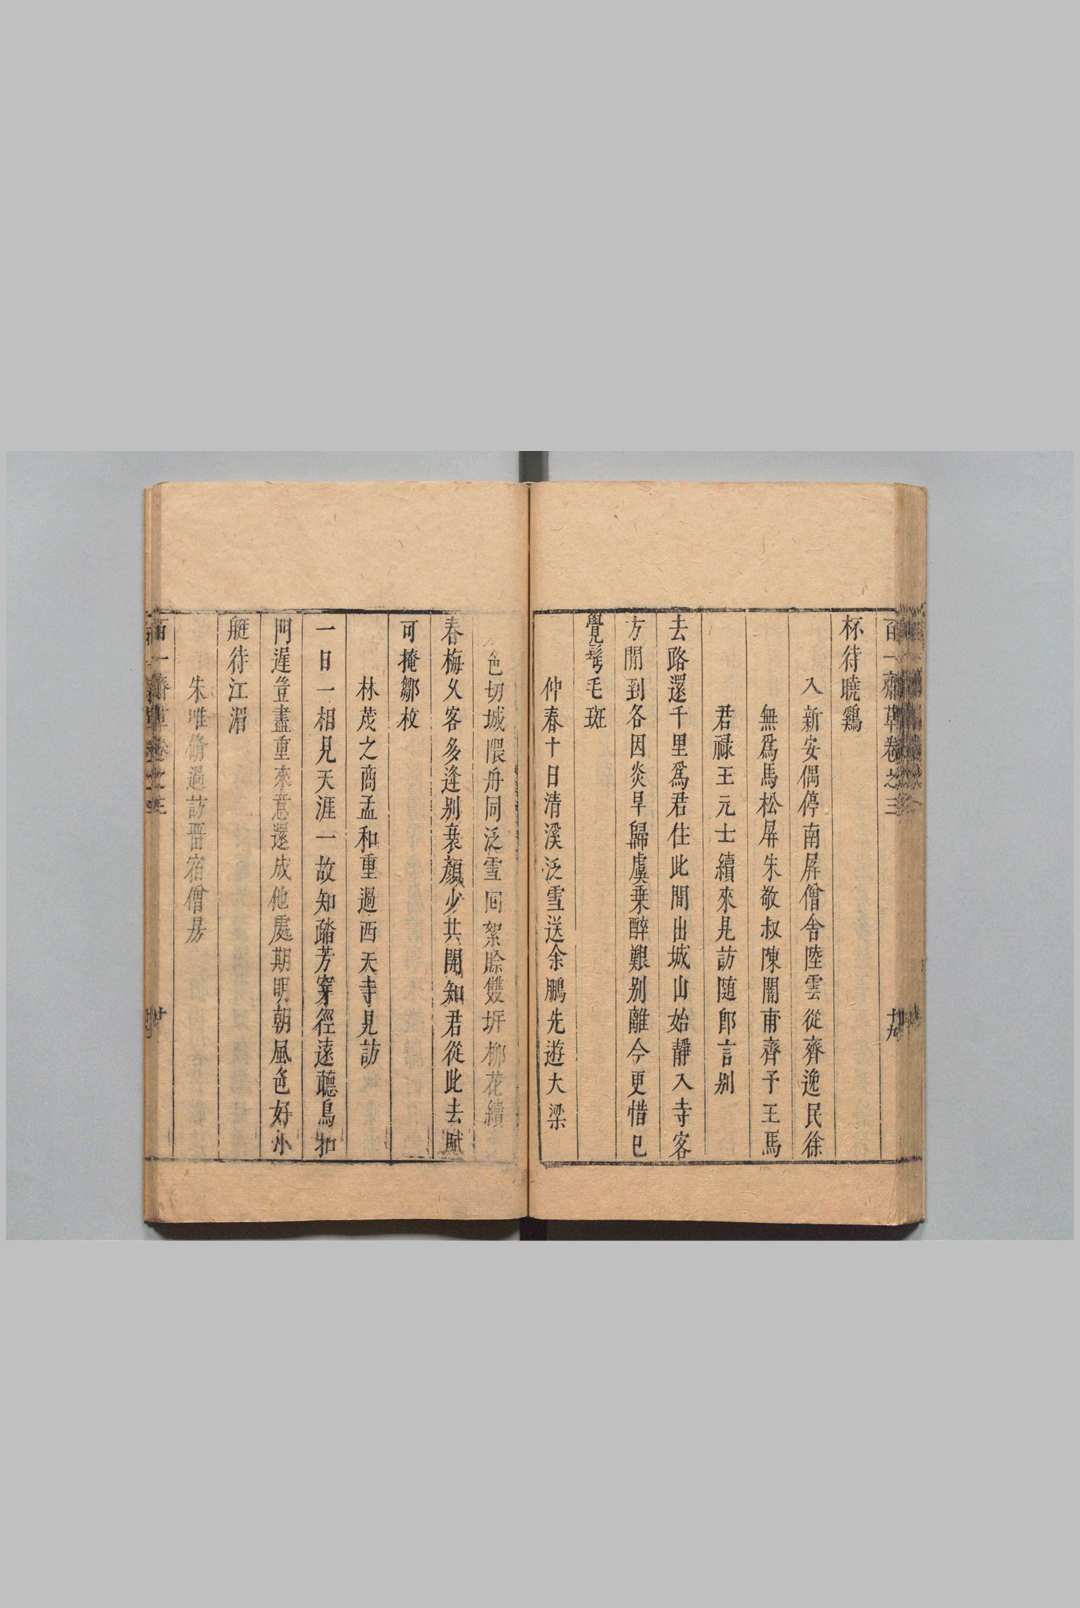 百一齋草卷之三 十九
杯待曉鷄
入新安偶停南屏僧舍陸雲從齊逸民徐
無爲馬松屏朱敬叔陳闇甫齊予王馬
君祿王元士續來見訪随卽言別
去路還千里爲君住此間出城山始靜入寺客
方閒到各因炎旱歸虞乗醉艱别離今更惜已
覺鬂毛斑
仲春十日清溪泛雪送余鵬先遊大梁
色切城隈舟同泛雪囘絮賖雙垪栁花續
春梅久客多逢别衰顔少共開知君從此去賦
可掩鄒枚
林茂之商孟和重過西天寺見訪
一日一相見天涯一故知踏芳穿徑遠聽鳥扣
門遅豈盡重來意還成他處期明朝風色好小
艇待江湄
朱唯脩過訪晋宿僧房
百一齋草卷之三 廿